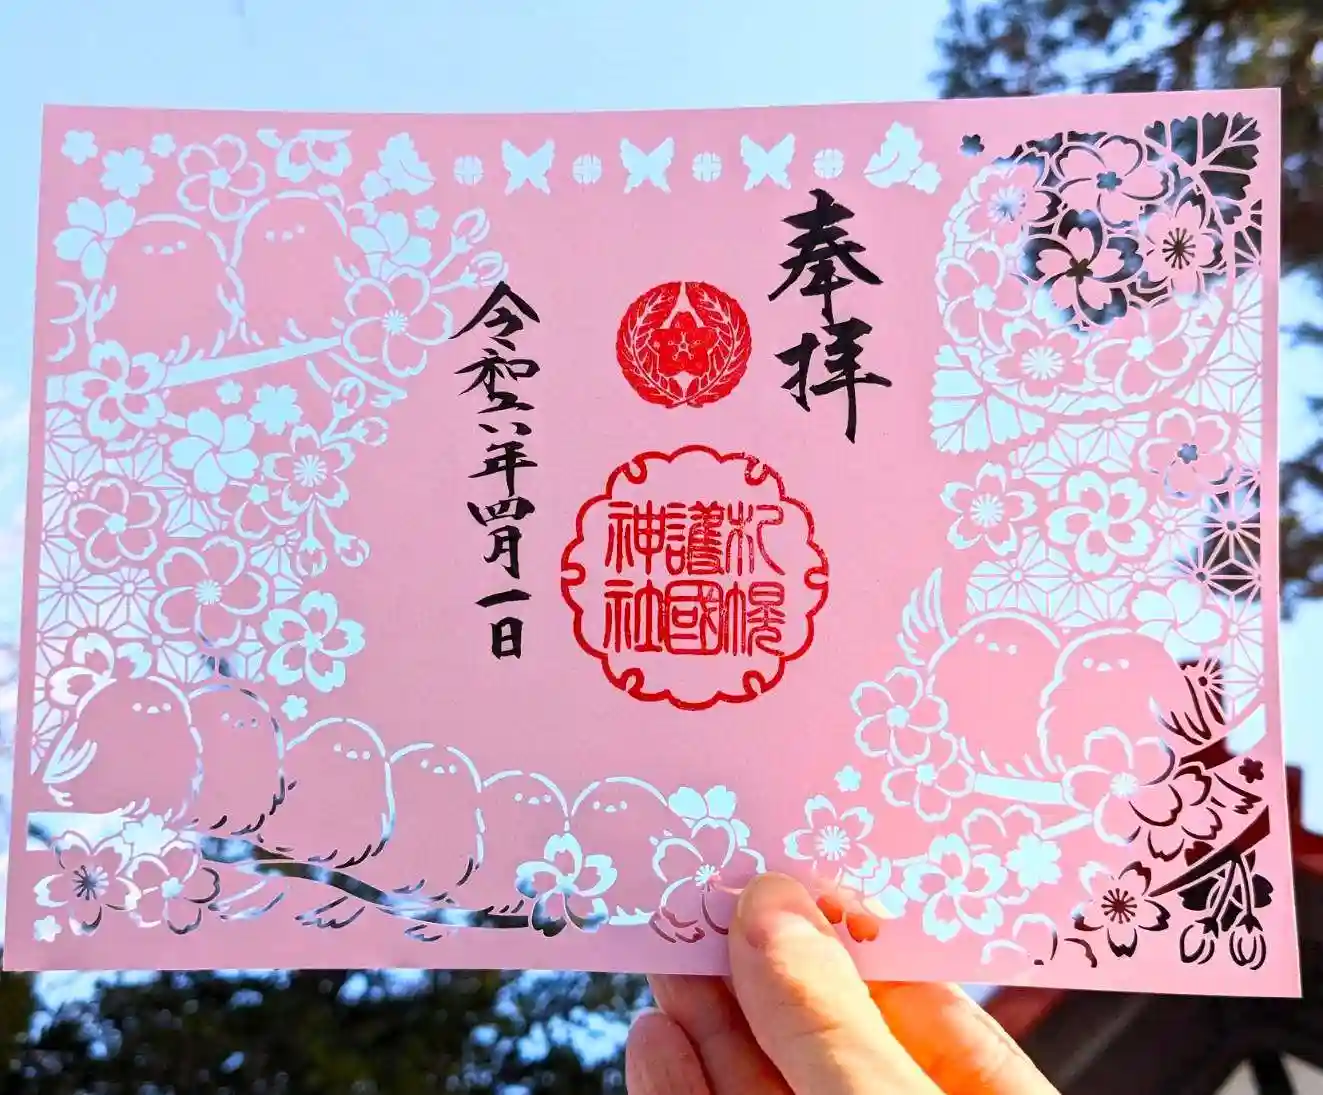 奉拝
札幌
護國
神社
令和六年四月一日